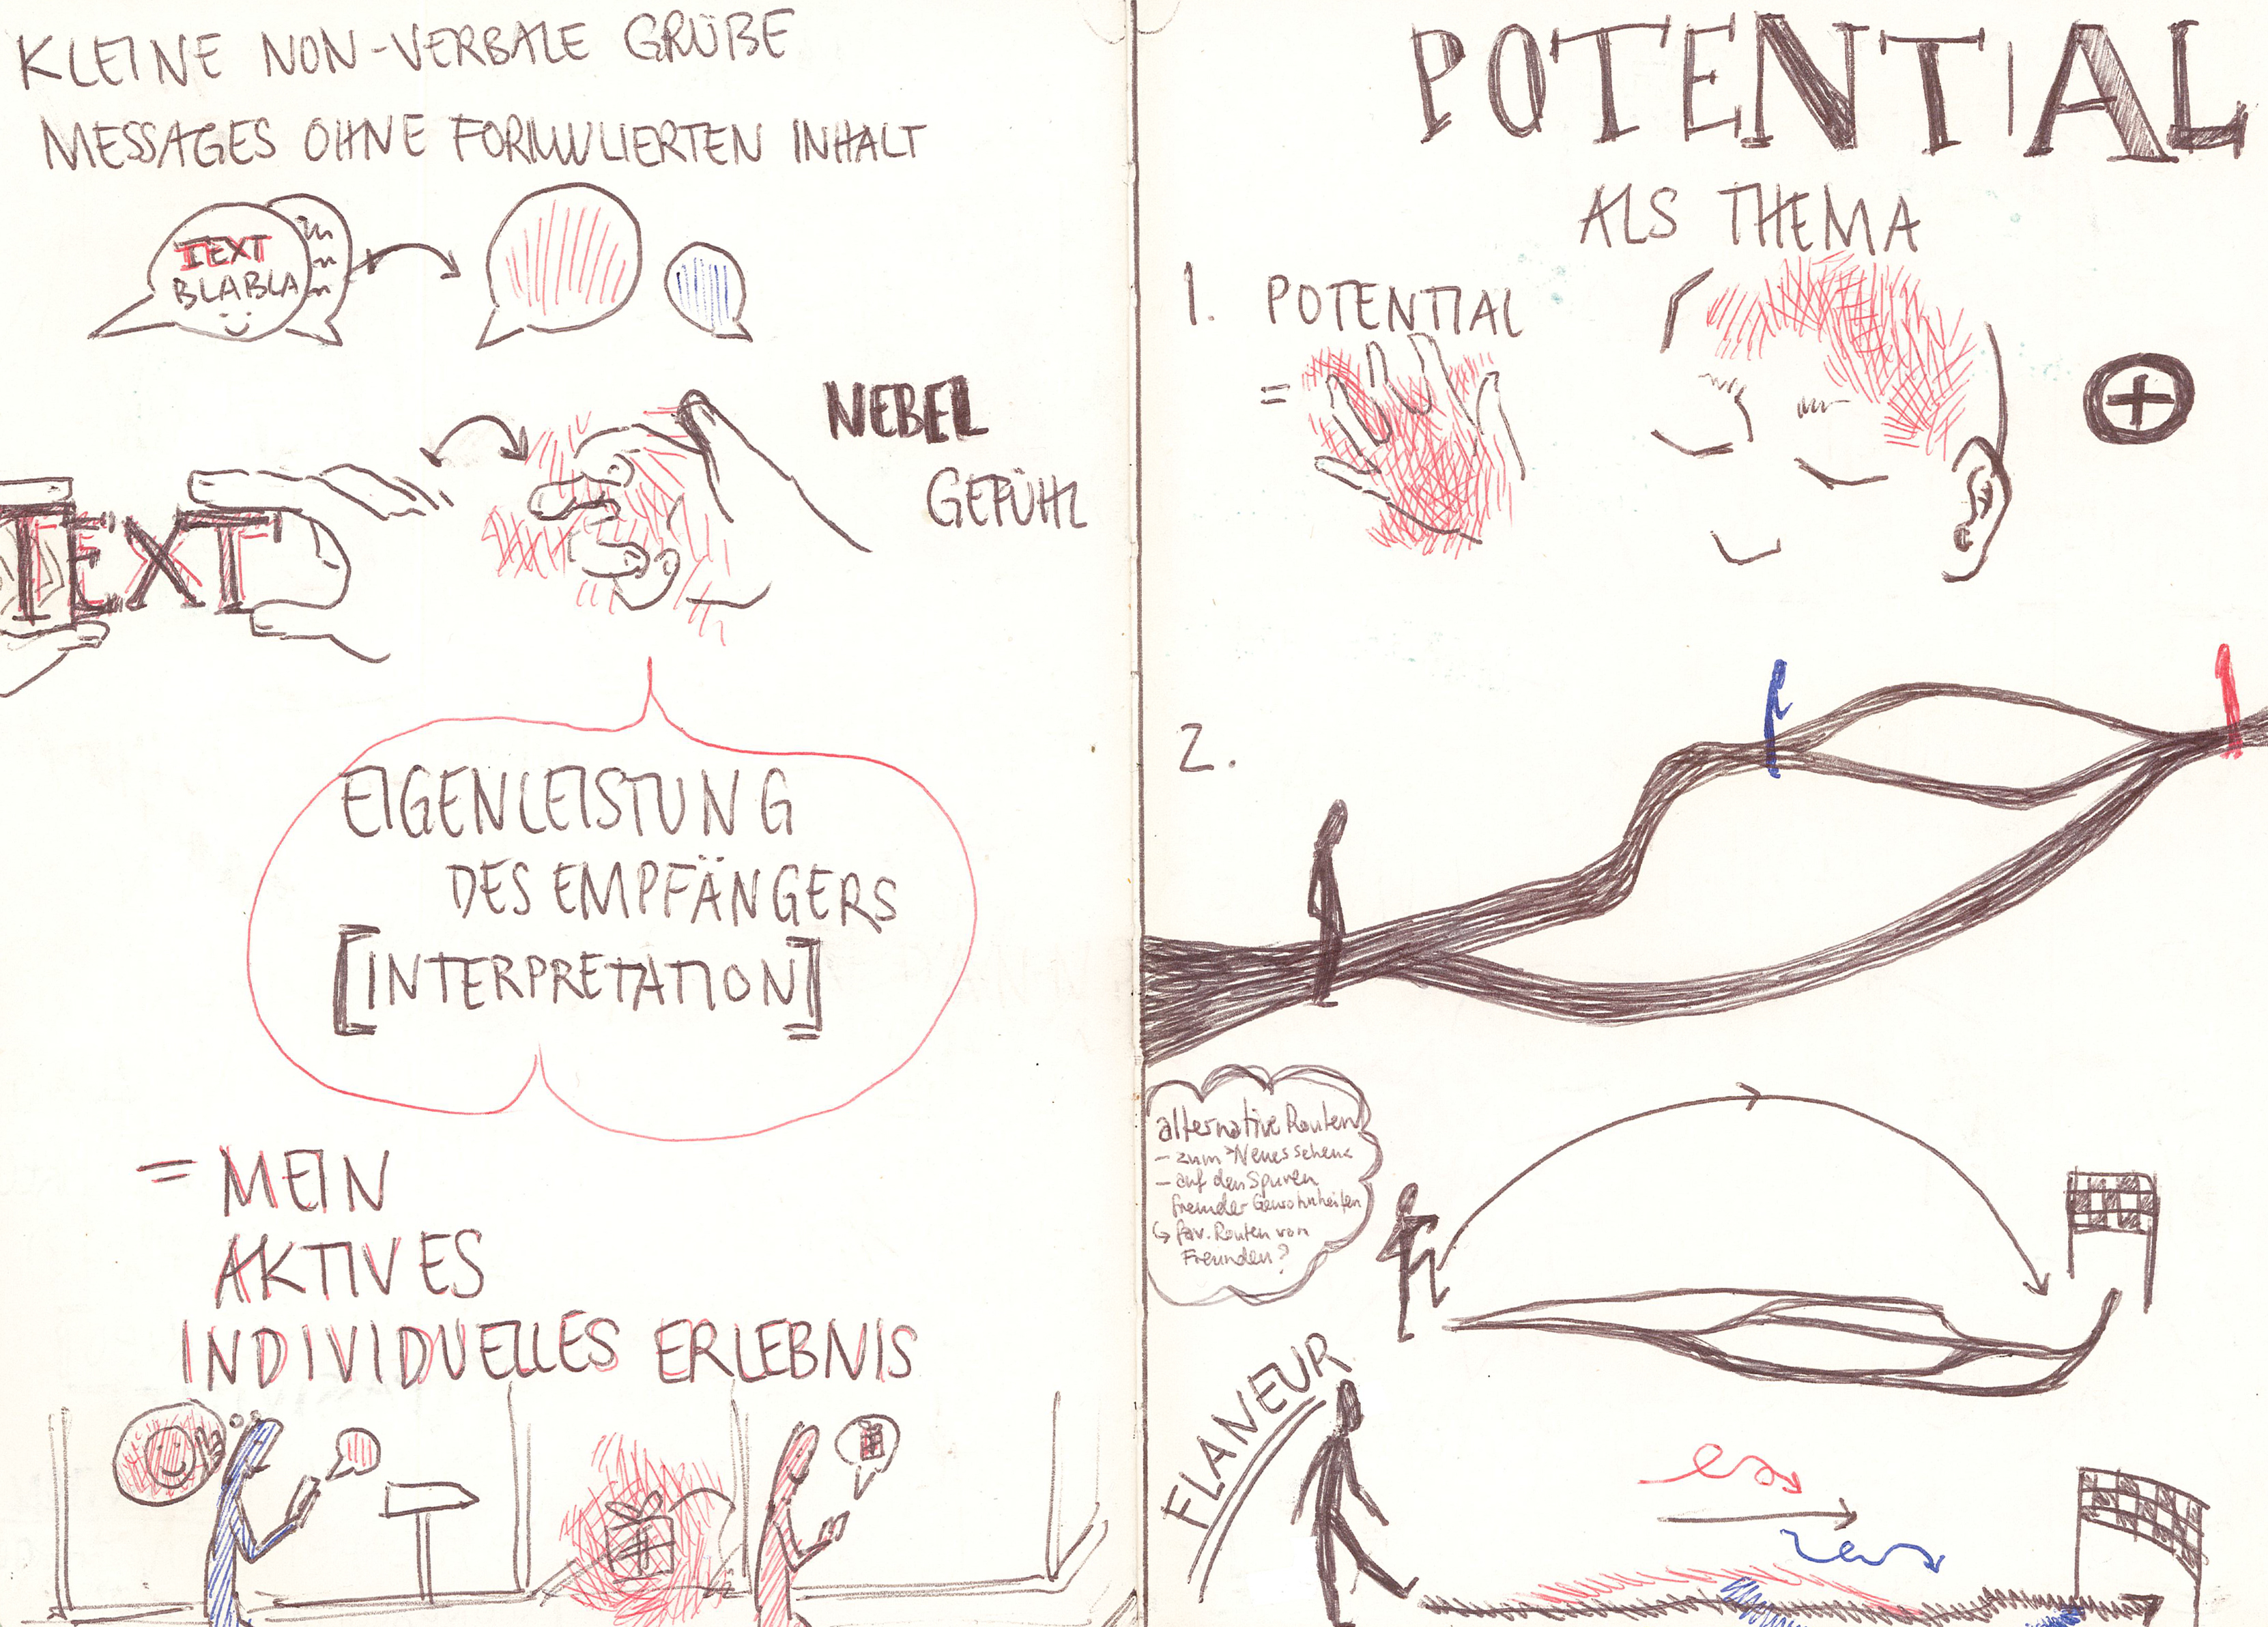 KLEINE NON-VERBALE GRÜßE
MESSAGES OHNE FORMULIERTEN INHALT
TEXT
BLABLA
NEBEL
GEFÜHL
TEXT
EIGENLEISTUNG
DES EMPFÄNGERS
[INTERPRETATION]
= MEIN
AKTIVES
INDIVIDUELLES ERLEBNIS
POTENTIAL
ALS THEMA
1. POTENTIAL
=
+
2.
alternative Routen
- zum >Neues sehen<
- auf den Spuren
fremder Gewohnheiten
↳ fav. Routen von
Freunden?
FLANEUR